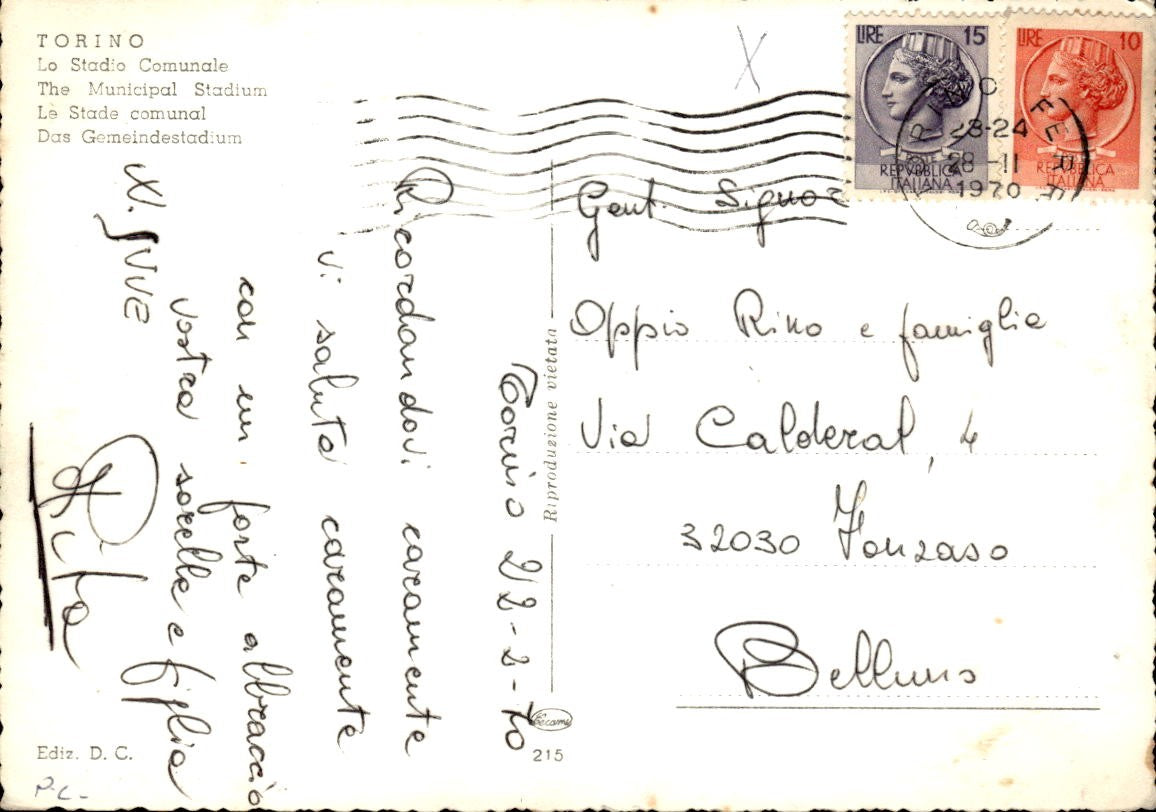 TORINO
Lo Stadio Comunale
The Municipal Stadium
Le Stade comunal
Das Gemeindestadium
LIRE 15
REPVBBLICA
ITALIANA
LIRE 10
REPVBBLICA
ITALIANA
23-24
28-11
1970
Torino 22-2-70
Ricordandovi caramente
vi saluta caramente
con un forte abbraccio
vostra sorella e figlia
Rita
Gent. Signor
Oppio Rino e famiglia
Via Calderal, 4
32030 Fonzaso
Belluno
Riproduzione vietata
Ediz. D. C.
215
P.C-